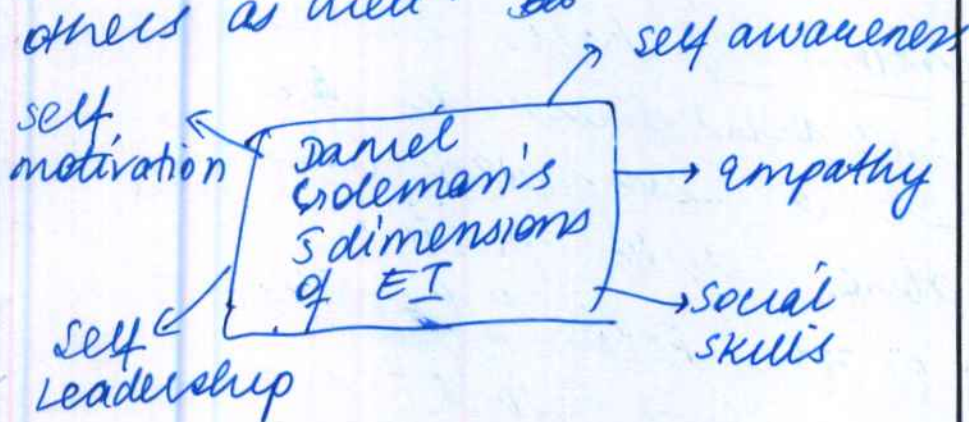 others as well
self awareness
self
motivation
Daniel
Goleman's
5 dimensions
of EI
empathy
social
skills
self
Leadership